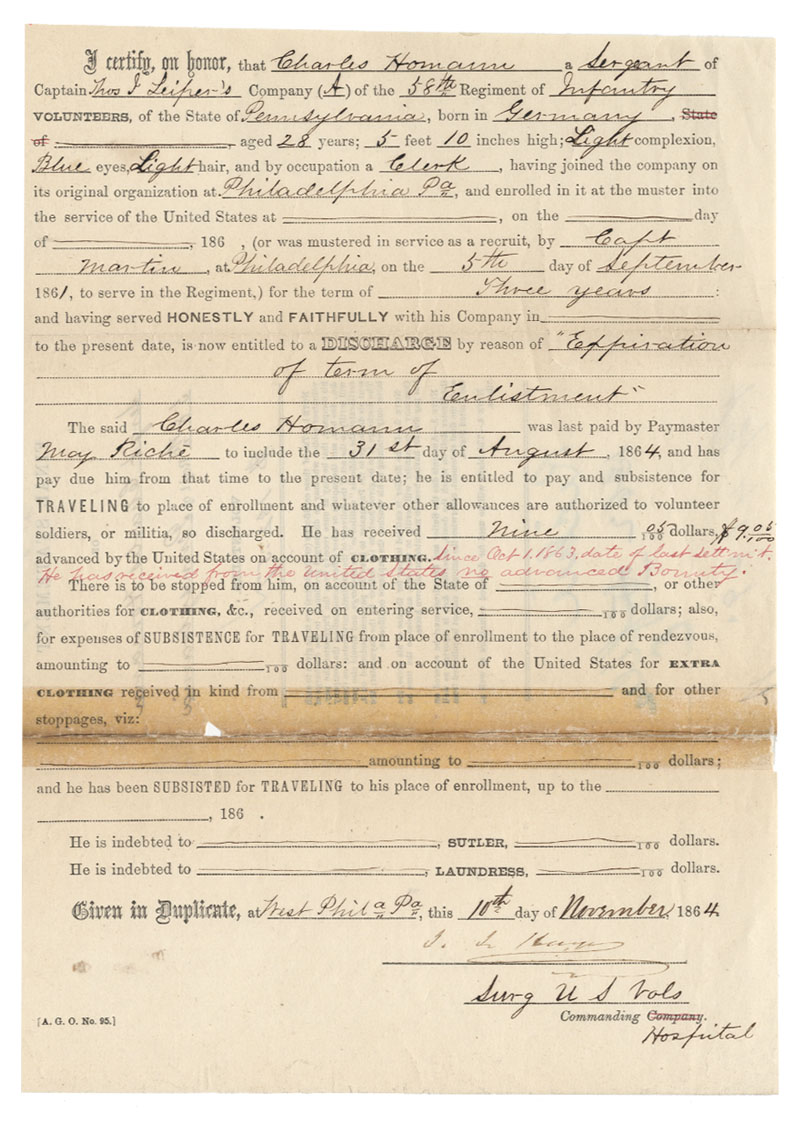 I certify, on honor, that Charles Homann a Sergeant of
Captain Thos I Leiper's Company (A) of the 58th Regiment of Infantry
VOLUNTEERS, of the State of Pennsylvania, born in Germany, State
of aged 28 years; 5 feet 10 inches high; Light complexion,
Blue eyes, Light hair, and by occupation a Clerk, having joined the company on
its original organization at Philadelphia Pa, and enrolled in it at the muster into
the service of the United States at , on the day
of , 186 , (or was mustered in service as a recruit, by Capt
Martin, at Philadelphia, on the 5th day of September
1861, to serve in the Regiment,) for the term of Three years :
and having served HONESTLY and FAITHFULLY with his Company in
to the present date, is now entitled to a DISCHARGE by reason of "Expiration
of term of
Enlistment"
The said Charles Homann was last paid by Paymaster
Maj Riché to include the 31st day of August, 1864, and has
pay due him from that time to the present date; he is entitled to pay and subsistence for
TRAVELING to place of enrollment and whatever other allowances are authorized to volunteer
soldiers, or militia, so discharged. He has received Nine 05/100 dollars, $9.05/100
advanced by the United States on account of CLOTHING. Since Oct 1.1863. date of last settm't.
He has received from the United States no advanced Bounty.
There is to be stopped from him, on account of the State of , or other
authorities for CLOTHING, &c., received on entering service, 100 dollars; also,
for expenses of SUBSISTENCE for TRAVELING from place of enrollment to the place of rendezvous,
amounting to 100 dollars: and on account of the United States for EXTRA
CLOTHING received in kind from and for other
stoppages, viz:
amounting to 100 dollars;
and he has been SUBSISTED for TRAVELING to his place of enrollment, up to the
, 186 .
He is indebted to , SUTLER, 100 dollars.
He is indebted to , LAUNDRESS, 100 dollars.
Given in Duplicate, at West Phila Pa, this 10th day of November, 1864
Surg U S Vols
[A. G. O. No. 95.] Commanding Company.
Hospital